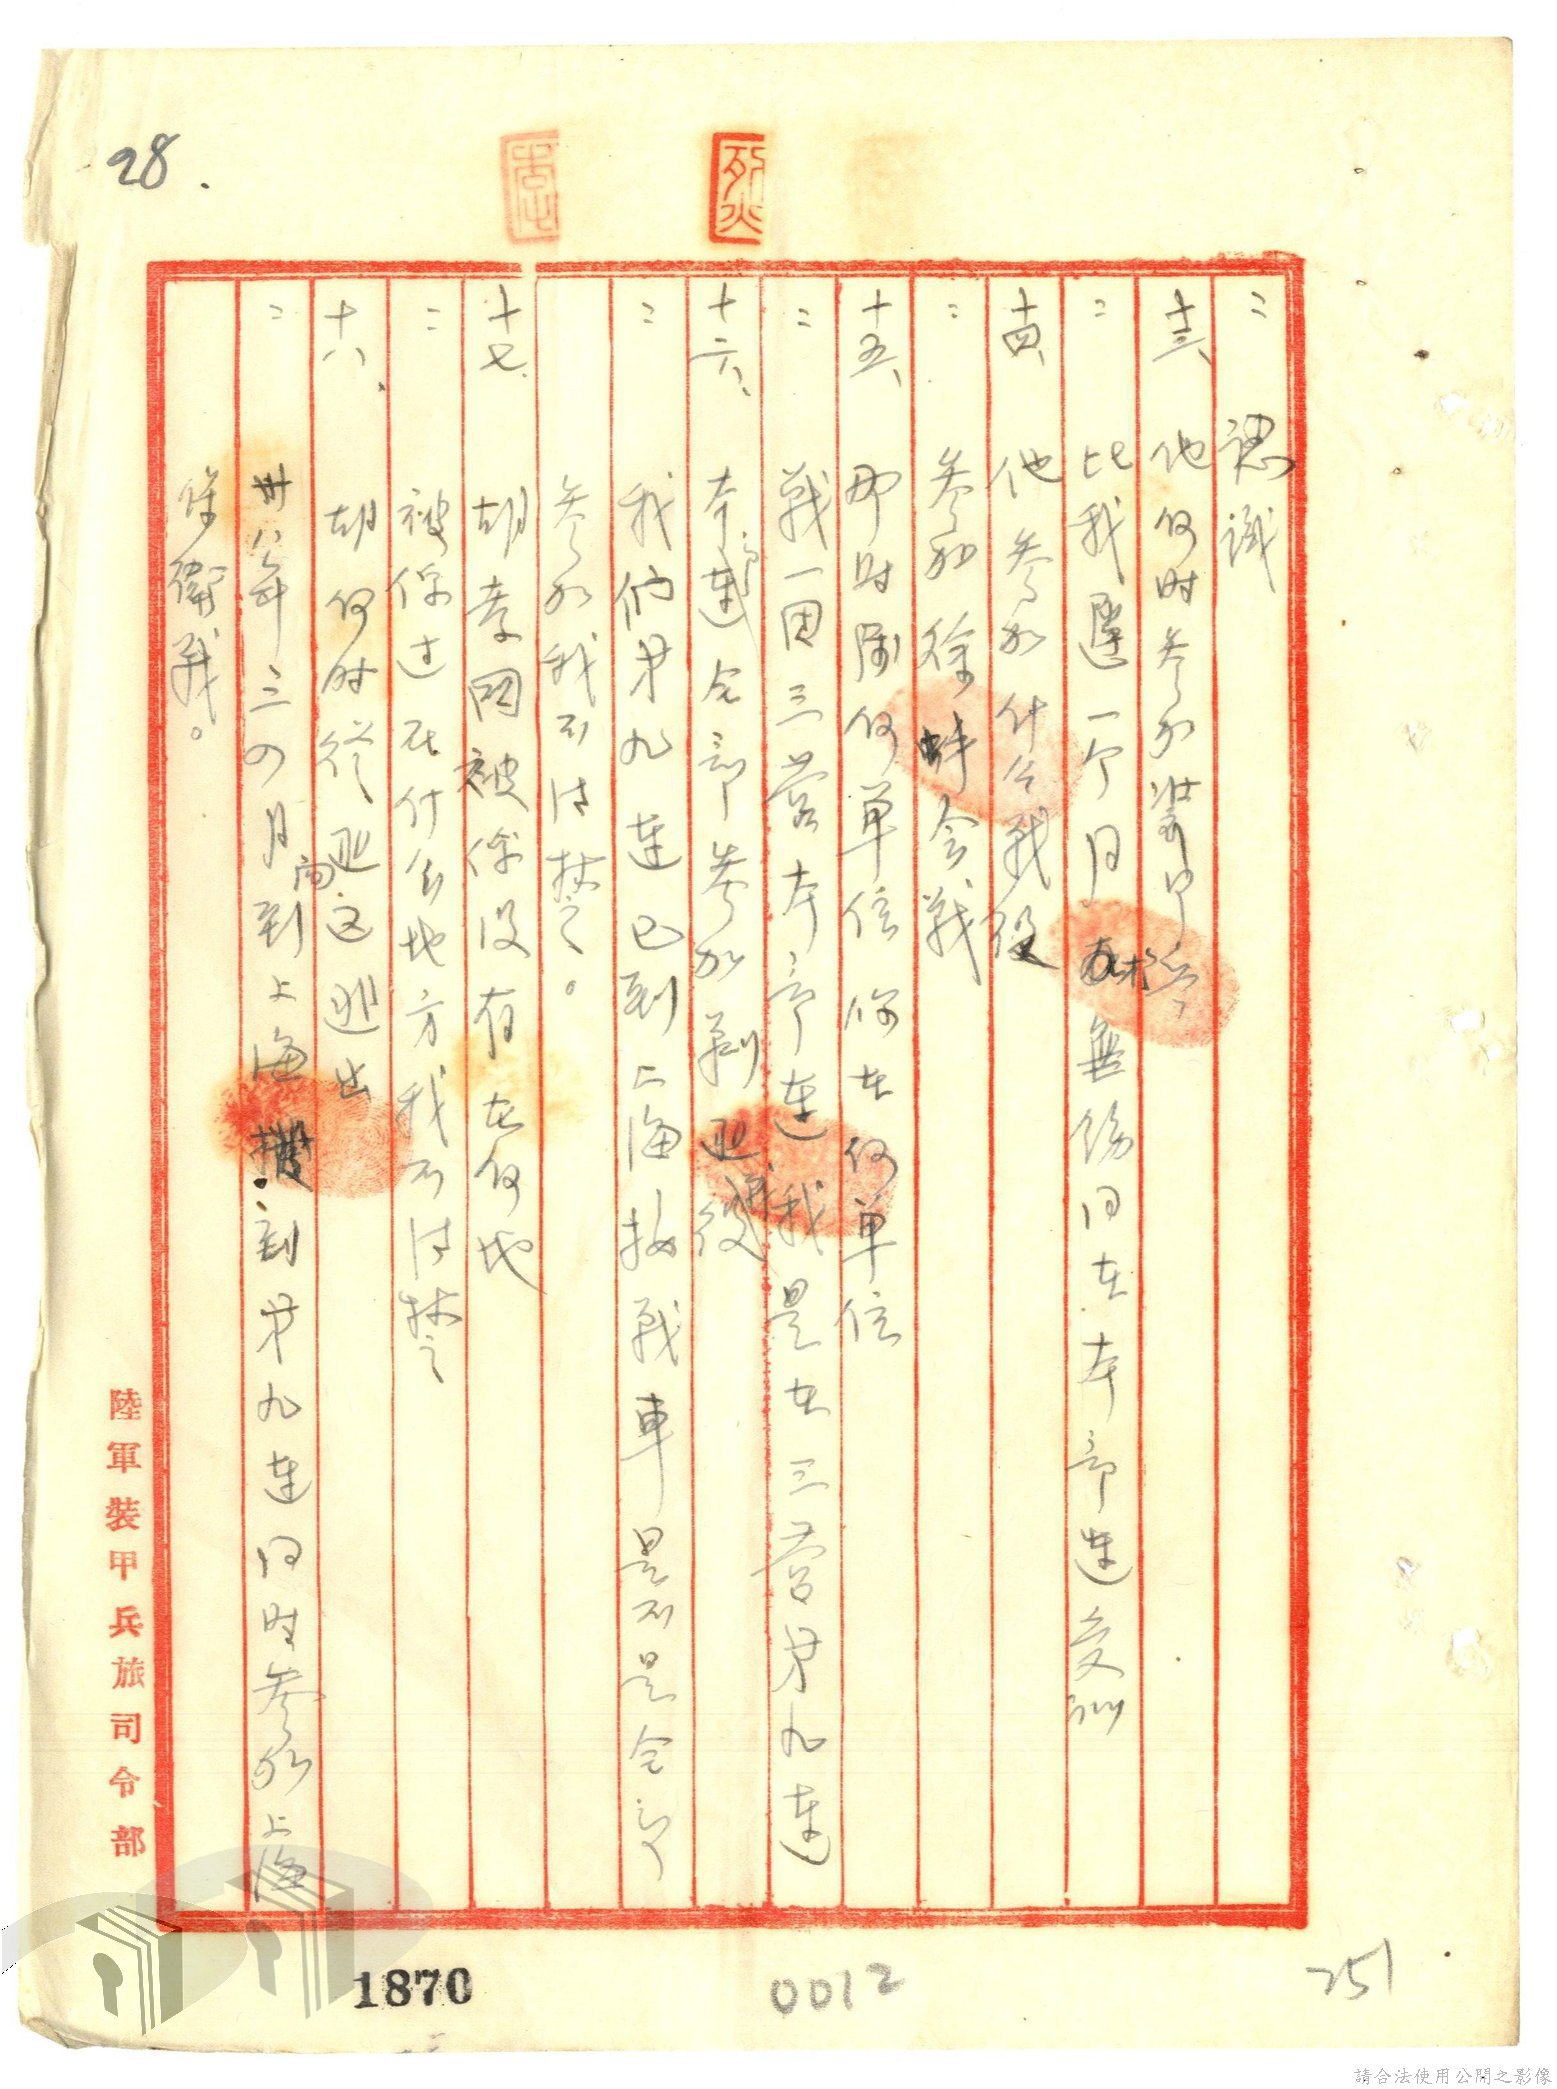 28.
烈
：認識
十三、他何时参加裝甲兵
：比我遲一个月 無錫同在本部連受訓
十四、他参加什么戰役
：参加徐蚌会戰
十五、那时属何单位你在何单位
：戰一团三营本部連我是在三营第九連
十六、本部連全部参加剿 戰役
：我們第九連已到上海接戰車是不是全部
参加我不清楚。
十七、胡 被俘沒有在何地
：被俘过在什么地方我不清楚
十八、胡何时從 逃出
：卅八年三四月 到上海 到第九連同时参加上海
保衛戰。
陸軍裝甲兵旅司令部
1870
0012
251
請合法使用公開之影像